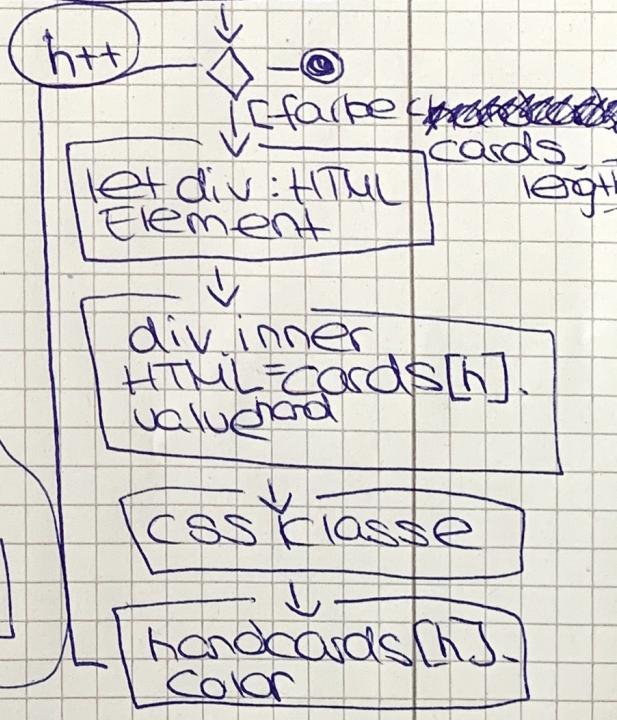 h++
[farbe <
cards.
length
let div: HTML
Element
div.inner
HTML=cards[h].
valuehand
css Klasse
handcards[h].
color